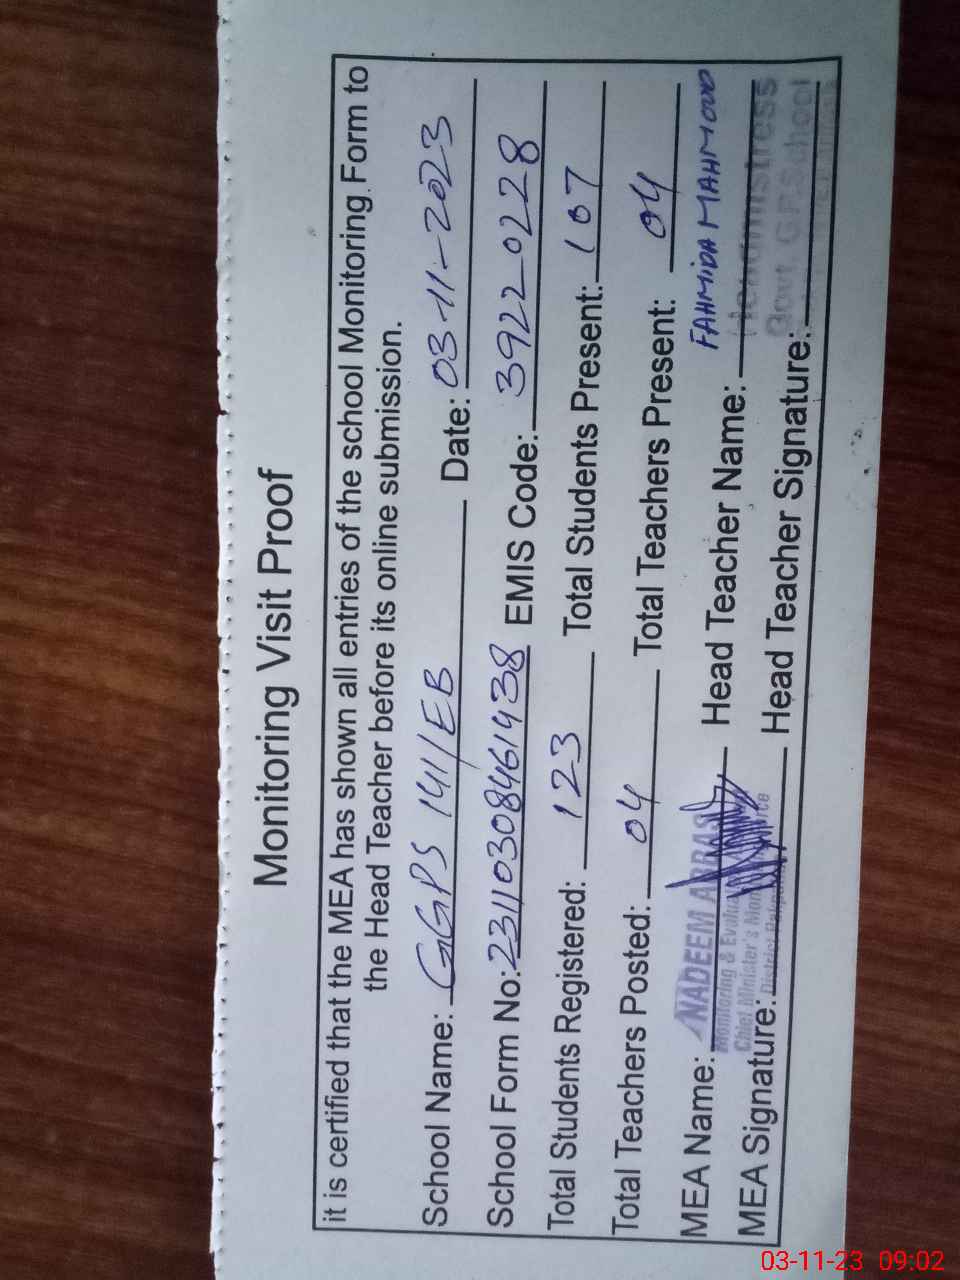 Monitoring Visit Proof
it is certified that the MEA has shown all entries of the school Monitoring Form to
the Head Teacher before its online submission.
School Name: GGPS 141/EB Date: 03-11-2023
School Form No: 23110308461438 EMIS Code: 39220228
Total Students Registered: 123 Total Students Present: 107
Total Teachers Posted: 04 Total Teachers Present: 04
MEA Name: NADEEM ABBAS Head Teacher Name: FAHMIDA MAHMOOD
Monitoring & Evalua
Chief Minister's Mon
District Pakp
Headmistress
Govt. GPS School
MEA Signature: Head Teacher Signature:
03-11-23 09:02